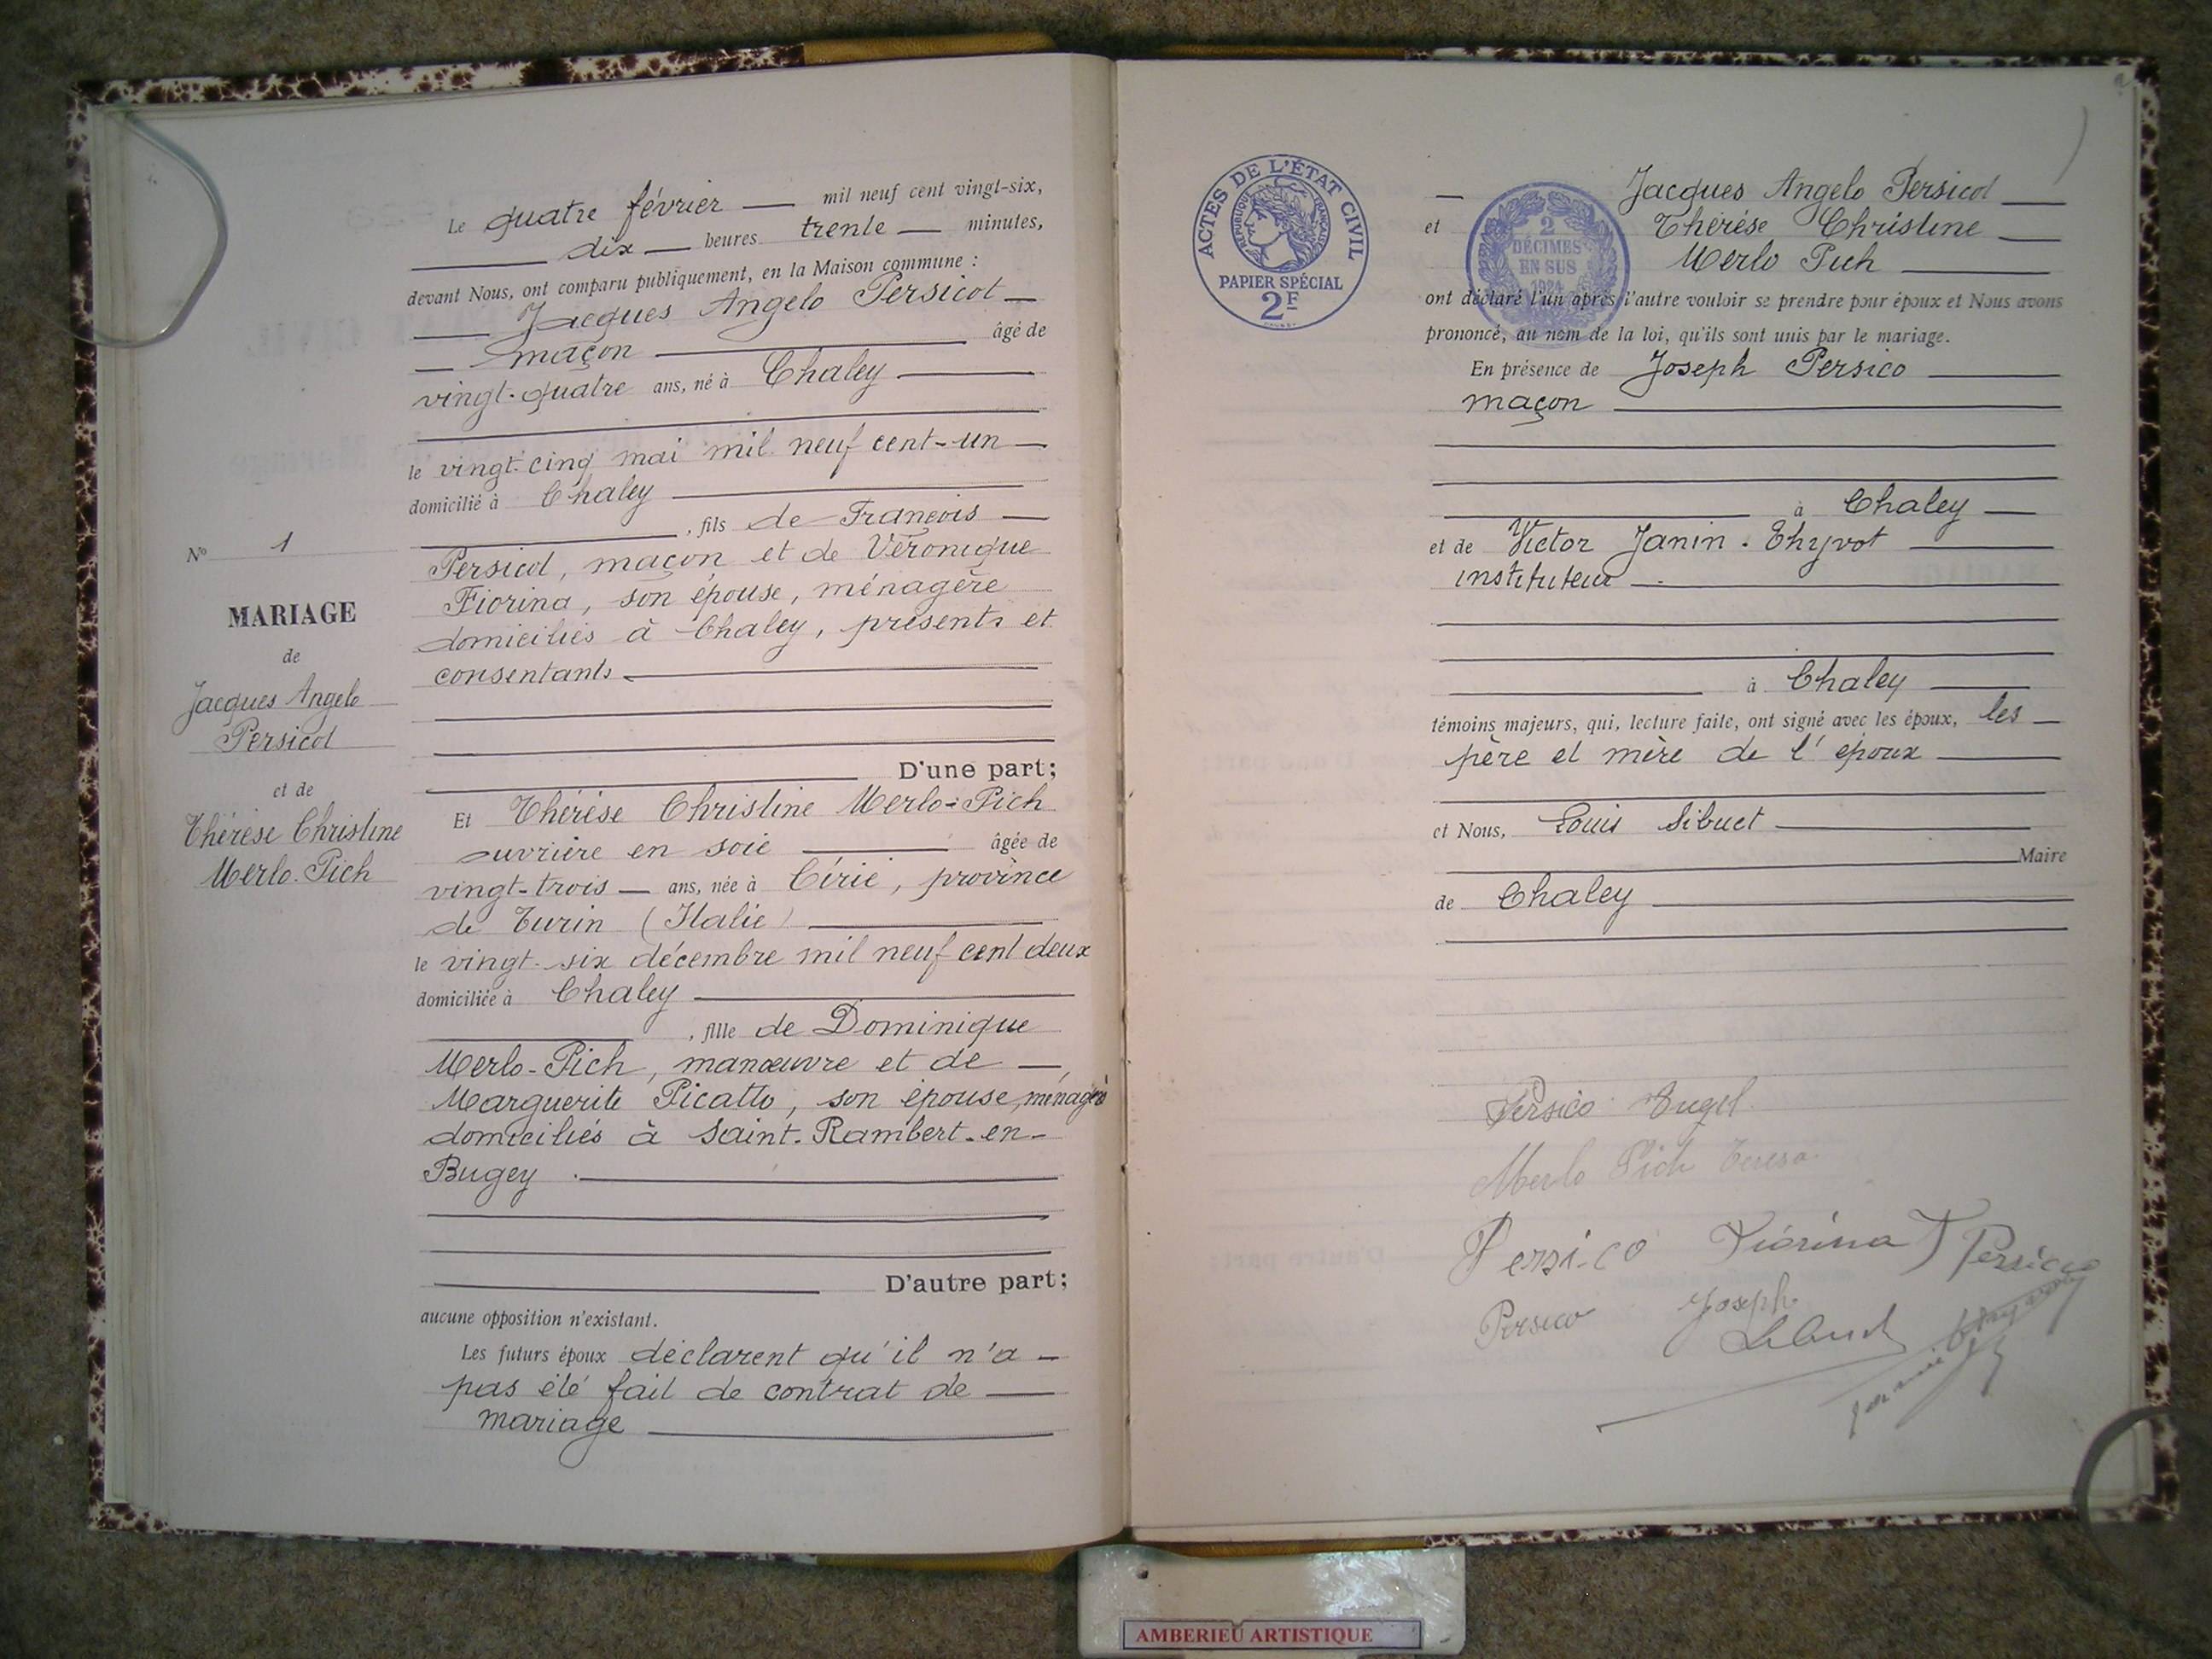 Le quatre février — mil neuf cent vingt-six,
dix — heures trente — minutes,
devant Nous, ont comparu publiquement, en la Maison commune :
Jacques Angelo Persicot
maçon — âgé de
vingt-quatre ans, né à Chaley
le vingt-cinq mai mil neuf cent-un
domicilié à Chaley
, fils de François
Persicot, maçon et de Véronique
Fiorina, son épouse, ménagère
domiciliés à Chaley, présents et
consentants
D'une part;
Et Thérèse Christine Merlo-Pich
ouvrière en soie — âgée de
vingt-trois — ans, née à Cirié, province
de Turin (Italie)
le vingt-six décembre mil neuf cent deux
domiciliée à Chaley
, fille de Dominique
Merlo-Pich, manœuvre et de —
Marguerite Picatto, son épouse, ménagère
domiciliés à Saint-Rambert-en-
Bugey
D'autre part;
aucune opposition n'existant.
Les futurs époux déclarent qu'il n'a
pas été fait de contrat de
mariage
N° 1
MARIAGE
de
Jacques Angelo
Persicot
et de
Thérèse Christine
Merlo-Pich
ACTES DE L'ÉTAT CIVIL
RÉPUBLIQUE FRANÇAISE
PAPIER SPÉCIAL
2F
2
DÉCIMES
EN SUS
1924
Jacques Angelo Persicot
et Thérèse Christine
Merlo Pich
ont déclaré l'un après l'autre vouloir se prendre pour époux et Nous avons
prononcé, au nom de la loi, qu'ils sont unis par le mariage.
En présence de Joseph Persico
maçon
à Chaley
et de Victor Janin-Thyvot
instituteur
à Chaley
témoins majeurs, qui, lecture faite, ont signé avec les époux, les
père et mère de l'époux
et Nous, Louis Sibuet
Maire
de Chaley
Persico Angel
Merlo Pich Teresa
Persico Fiorina F Persico
Persico Joseph
AMBERIEU ARTISTIQUE